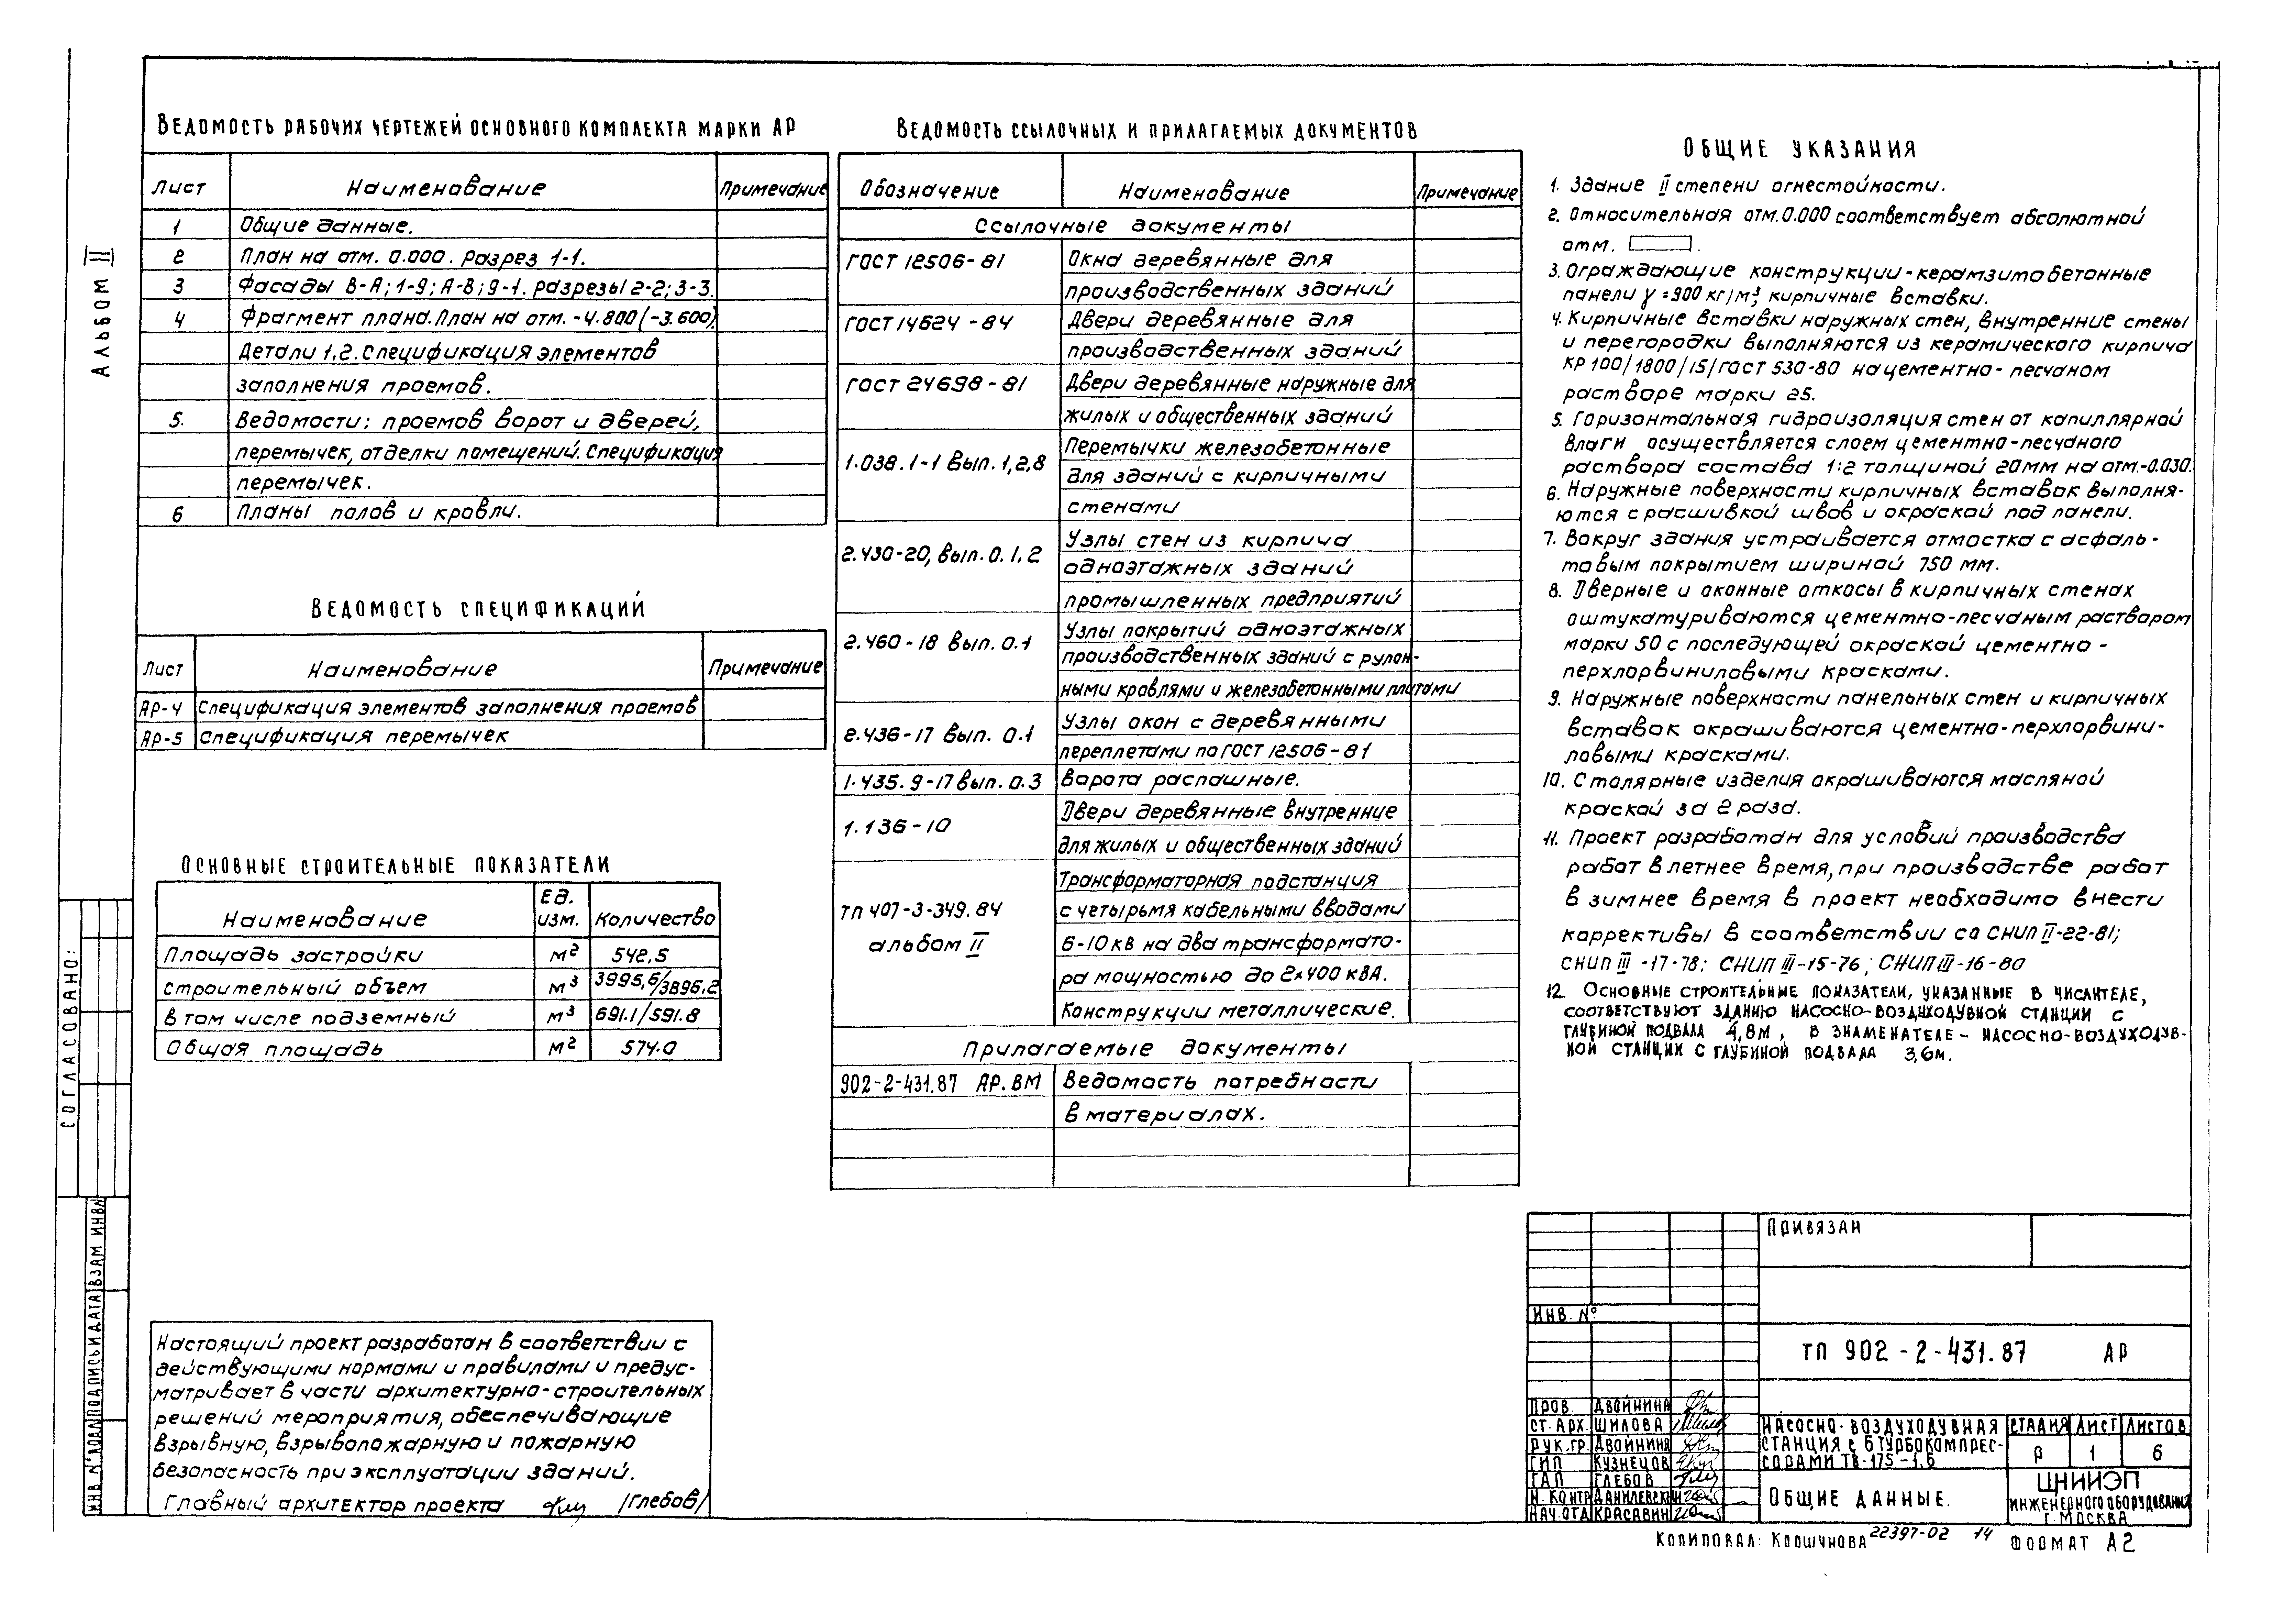 АЛЬБОМ II
ВЕДОМОСТЬ РАБОЧИХ ЧЕРТЕЖЕЙ ОСНОВНОГО КОМПЛЕКТА МАРКИ АР
Лист Наименование Примечание
1 Общие данные.
2 План на отм. 0.000. Разрез 1-1.
3 Фасады В-А; 1-9; А-В; 9-1. Разрезы 2-2; 3-3.
4 Фрагмент плана. План на отм. -4.800 (-3.600).
Детали 1,2. Спецификация элементов
заполнения проемов.
5. Ведомости: проемов ворот и дверей,
перемычек, отделки помещений. Спецификация
перемычек.
6 Планы полов и кровли.
ВЕДОМОСТЬ СПЕЦИФИКАЦИЙ
Лист Наименование Примечание
АР-4 Спецификация элементов заполнения проемов
АР-5 Спецификация перемычек
ОСНОВНЫЕ СТРОИТЕЛЬНЫЕ ПОКАЗАТЕЛИ
Наименование Ед. изм. Количество
Площадь застройки м² 542,5
Строительный объем м³ 3995,6/3896,2
в том числе подземный м³ 691.1/591.8
Общая площадь м² 574.0
Настоящий проект разработан в соответствии с
действующими нормами и правилами и предус-
матривает в части архитектурно-строительных
решений мероприятия, обеспечивающие
взрывную, взрывопожарную и пожарную
безопасность при эксплуатации зданий.
Главный архитектор проекта /Глебов/
ВЕДОМОСТЬ ССЫЛОЧНЫХ И ПРИЛАГАЕМЫХ ДОКУМЕНТОВ
Обозначение Наименование Примечание
Ссылочные документы
ГОСТ 12506-81 Окна деревянные для
производственных зданий
ГОСТ 14624-84 Двери деревянные для
производственных зданий
ГОСТ 24698-81 Двери деревянные наружные для
жилых и общественных зданий
1.038.1-1 вып. 1,2,8 Перемычки железобетонные
для зданий с кирпичными
стенами
2.430-20, вып. 0.1.2 Узлы стен из кирпича
одноэтажных зданий
промышленных предприятий
2.460-18 вып. 0.1 Узлы покрытий одноэтажных
производственных зданий с рулон-
ными кровлями и железобетонными плитами
2.436-17 вып. 0.1 Узлы окон с деревянными
переплетами по ГОСТ 12506-81
1.435.9-17 вып. 0.3 Ворота распашные.
1.136-10 Двери деревянные внутренние
для жилых и общественных зданий
ТП 407-3-349.84 Трансформаторная подстанция
альбом II с четырьмя кабельными вводами
6-10 кв на два трансформато-
ра мощностью до 2х400 кВА.
Конструкции металлические.
Прилагаемые документы
902-2-431.87 АР.ВМ Ведомость потребности
в материалах.
ОБЩИЕ УКАЗАНИЯ
1. Здание II степени огнестойкости.
2. Относительная отм. 0.000 соответствует абсолютной
отм. .
3. Ограждающие конструкции - керамзитобетонные
панели γ=900 кг/м³, кирпичные вставки.
4. Кирпичные вставки наружных стен, внутренние стены
и перегородки выполняются из керамического кирпича
КР 100/1800/15/ГОСТ 530-80 на цементно-песчаном
растворе марки 25.
5. Горизонтальная гидроизоляция стен от капиллярной
влаги осуществляется слоем цементно-песчаного
раствора состава 1:2 толщиной 20мм на отм.-0.030.
6. Наружные поверхности кирпичных вставок выполня-
ются с расшивкой швов и окраской под панели.
7. Вокруг здания устраивается отмостка с асфаль-
товым покрытием шириной 750 мм.
8. Дверные и оконные откосы в кирпичных стенах
оштукатуриваются цементно-песчаным раствором
марки 50 с последующей окраской цементно-
перхлорвиниловыми красками.
9. Наружные поверхности панельных стен и кирпичных
вставок окрашиваются цементно-перхлорвини-
ловыми красками.
10. Столярные изделия окрашиваются масляной
краской за 2 раза.
11. Проект разработан для условий производства
работ в летнее время, при производстве работ
в зимнее время в проект необходимо внести
коррективы в соответствии со СНИП II-22-81;
СНИП III-17-78; СНИП III-15-76; СНИП III-16-80
12. ОСНОВНЫЕ СТРОИТЕЛЬНЫЕ ПОКАЗАТЕЛИ, УКАЗАННЫЕ В ЧИСЛИТЕЛЕ,
СООТВЕТСТВУЮТ ЗДАНИЮ НАСОСНО-ВОЗДУХОДУВНОЙ СТАНЦИИ С
ГЛУБИНОЙ ПОДВАЛА 4,8М, В ЗНАМЕНАТЕЛЕ - НАСОСНО-ВОЗДУХОДУВ-
НОЙ СТАНЦИИ С ГЛУБИНОЙ ПОДВАЛА 3,6М.
ПРИВЯЗАН
ИНВ. №
ТП 902-2-431.87 АР
ПРОВ. ДВОЙНИНА
СТ. АРХ. ШИЛОВА
РУК. ГР. ДВОЙНИНА
ГИП КУЗНЕЦОВ
ГАП ГЛЕБОВ
Н. КОНТР ДАНИЛЕВСКИЙ
НАЧ. ОТД КРАСАВИН
НАСОСНО-ВОЗДУХОДУВНАЯ
СТАНЦИЯ С 6 ТУРБОКОМПРЕС-
СОРАМИ ТВ-175-1,6
СТАДИЯ ЛИСТ ЛИСТОВ
Р 1 6
ОБЩИЕ ДАННЫЕ.
ЦНИИЭП
ИНЖЕНЕРНОГО ОБОРУДОВАНИЯ
Г. МОСКВА
КОПИРОВАЛ: 22397-02 14 ФОРМАТ А2
СОГЛАСОВАНО:
ИНВ № ПОДЛ ПОДПИСЬ И ДАТА ВЗАМ ИНВ№